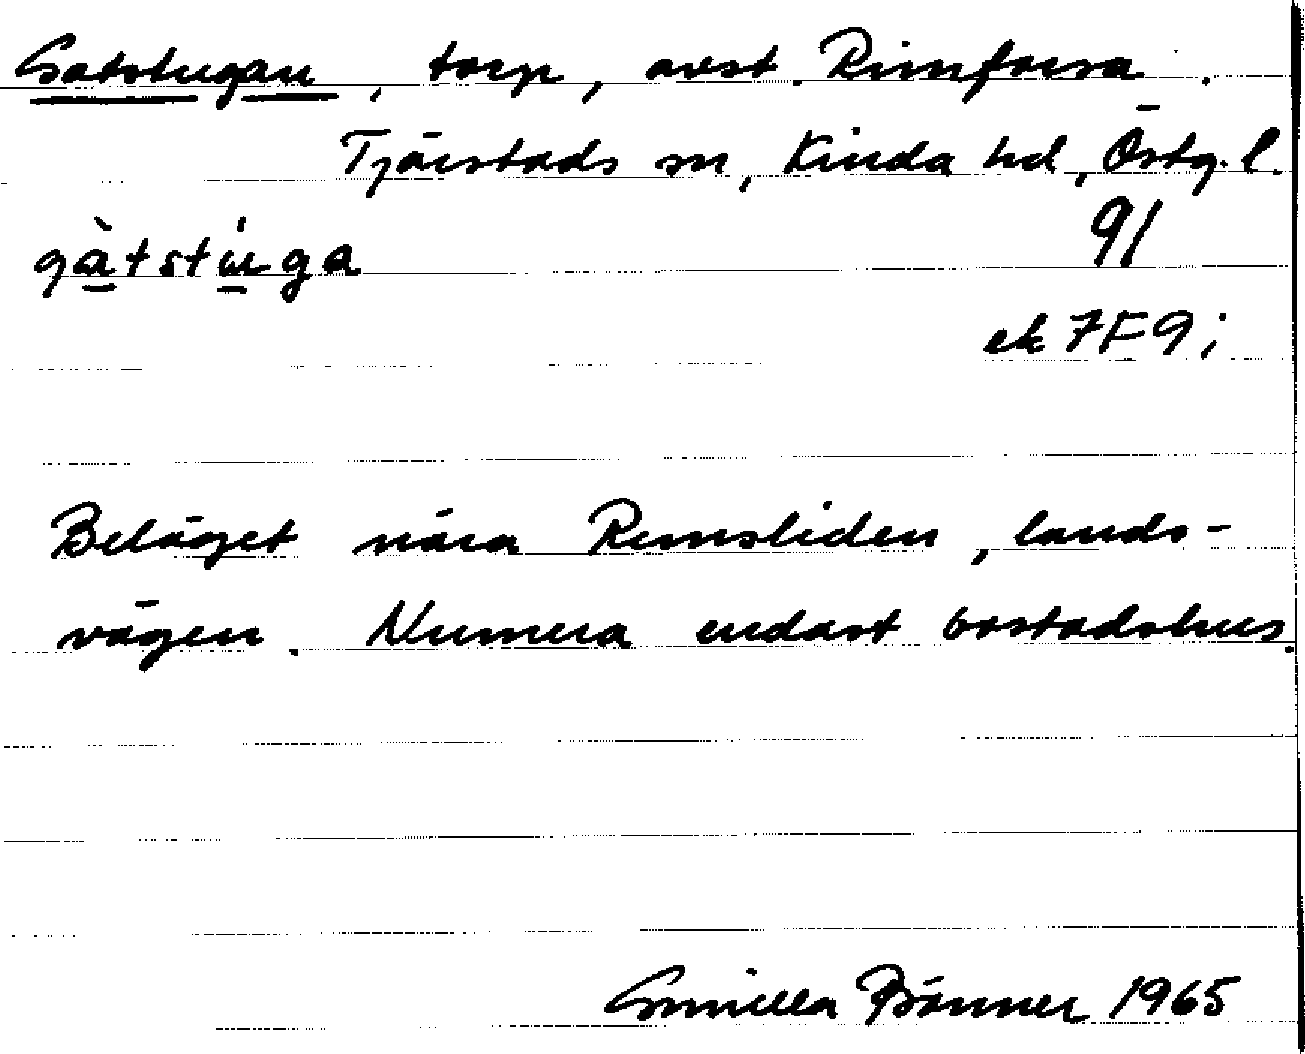 Gatstugan, torp, avst. Rimforsa.
Tjärstads sn, Kinda hd, Östg. l.
gàtstúga 91
ek 7F9i
Beläget nära Remsliden, lands-
vägen. Numera endast bostadshus.
Gunilla Bönner 1965